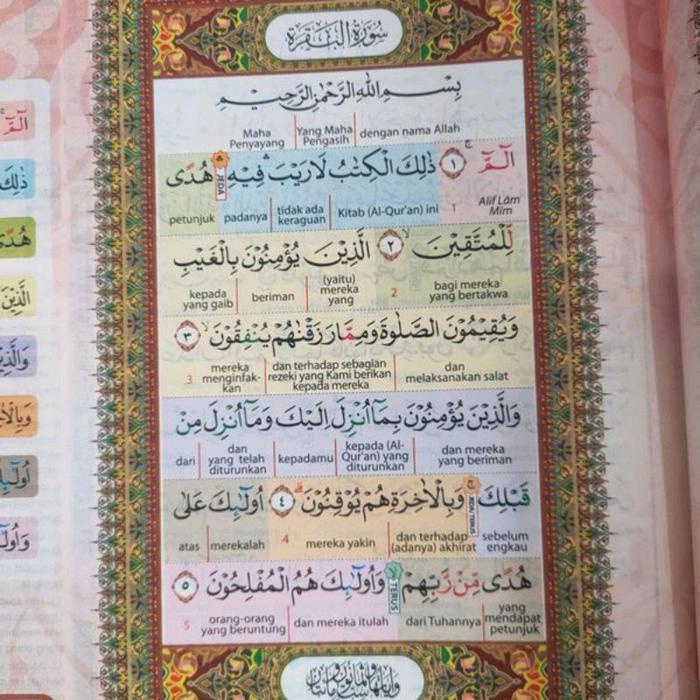 سُورَةُ الْبَقَرَةِ
بِسْمِ اللّٰهِ الرَّحْمٰنِ الرَّحِيْمِ
dengan nama Allah | Yang Maha Pengasih | Maha Penyayang
الٓمّٓ ۚ ١ ذٰلِكَ الْكِتٰبُ لَا رَيْبَ ۛ فِيْهِ ۛ هُدًى
JEDA
Alif Lām Mim | 1 | Kitab (Al-Qur'an) ini | tidak ada keraguan | padanya | petunjuk
لِّلْمُتَّقِيْنَ ۙ ٢ الَّذِيْنَ يُؤْمِنُوْنَ بِالْغَيْبِ
bagi mereka yang bertakwa | 2 | (yaitu) mereka yang | beriman | kepada yang gaib
وَيُقِيْمُوْنَ الصَّلٰوةَ وَمِمَّا رَزَقْنٰهُمْ يُنْفِقُوْنَ ۙ ٣
dan melaksanakan salat | dan terhadap sebagian rezeki yang Kami berikan kepada mereka | mereka menginfak-kan | 3
وَالَّذِيْنَ يُؤْمِنُوْنَ بِمَآ اُنْزِلَ اِلَيْكَ وَمَآ اُنْزِلَ مِنْ
dan mereka yang beriman | kepada (Al-Qur'an) yang diturunkan | kepadamu | dan yang telah diturunkan | dari
قَبْلِكَ ۚ وَبِالْاٰخِرَةِ هُمْ يُوْقِنُوْنَ ۗ ٤ اُولٰۤىِٕكَ عَلٰى
JEDA/TERUS
sebelum engkau | dan terhadap (adanya) akhirat | mereka yakin | 4 | merekalah | atas
هُدًى مِّنْ رَّبِّهِمْ ۙ وَاُولٰۤىِٕكَ هُمُ الْمُفْلِحُوْنَ ٥
TERUS
yang mendapat petunjuk | dari Tuhannya | dan mereka itulah | orang-orang yang beruntung | 5
الٓمّٓ
ذٰلِكَ
هُدًى
الَّذِيْنَ
وَالَّذِيْنَ